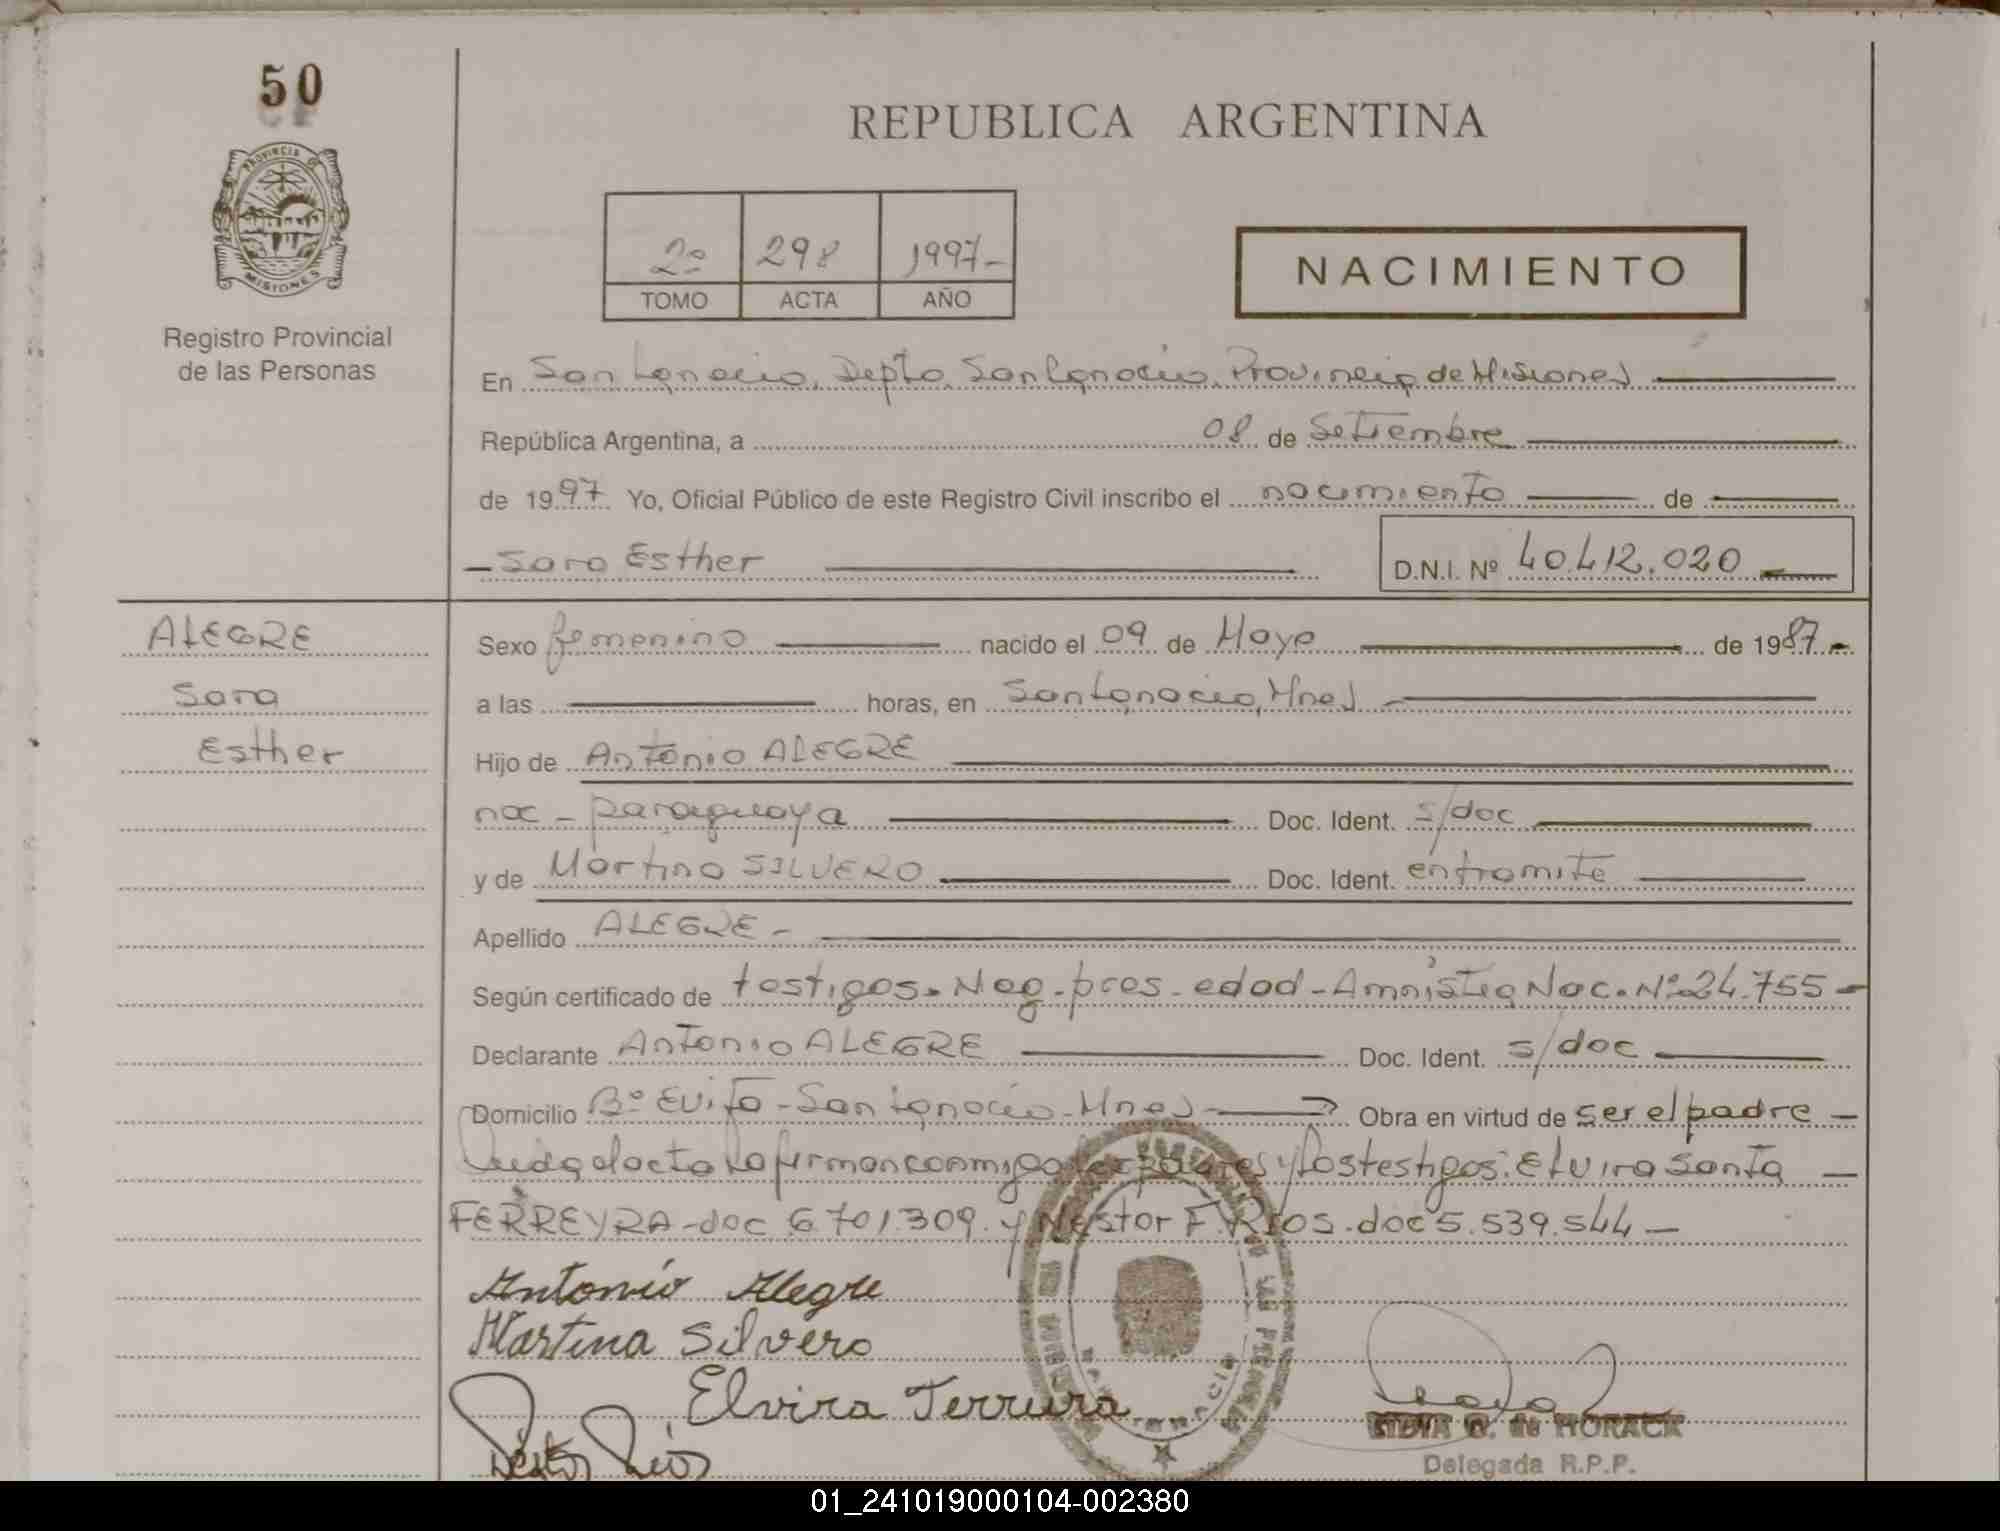 50
REPUBLICA ARGENTINA
PROVINCIA DE
MISIONES
Registro Provincial
de las Personas
2º 298 1997-
TOMO ACTA AÑO
NACIMIENTO
En San Ignacio, Depto. San Ignacio, Provincia de Misiones
República Argentina, a 08 de Setiembre
de 1997. Yo, Oficial Público de este Registro Civil inscribo el nacimiento de
- Sara Esther
D.N.I. Nº 40.412.020
ALEGRE
Sara
Esther
Sexo femenino nacido el 09 de Mayo de 1987.-
a las horas, en San Ignacio, Mnes -
Hijo de Antonio ALEGRE
nac - paraguaya Doc. Ident. s/doc
y de Martina SILVERO Doc. Ident. entramite
Apellido ALEGRE -
Según certificado de testigos. Neg. pres. edad - Amnistia Nac. Nº 24.755 -
Declarante Antonio ALEGRE Doc. Ident. s/doc
Domicilio Bº Evita - San Ignacio - Mnes - Obra en virtud de ser el padre -
Leida el acta la firman conmigo los padres y los testigos: Elvira Santa -
FERREYRA - doc 6.701.309. y Nestor F. Rios. doc 5.539.544 -
Antonio Alegre
Martina Silvero
Elvira Ferreira
Néstor Rios
de HORACK
Delegada R.P.P.
01_241019000104-002380